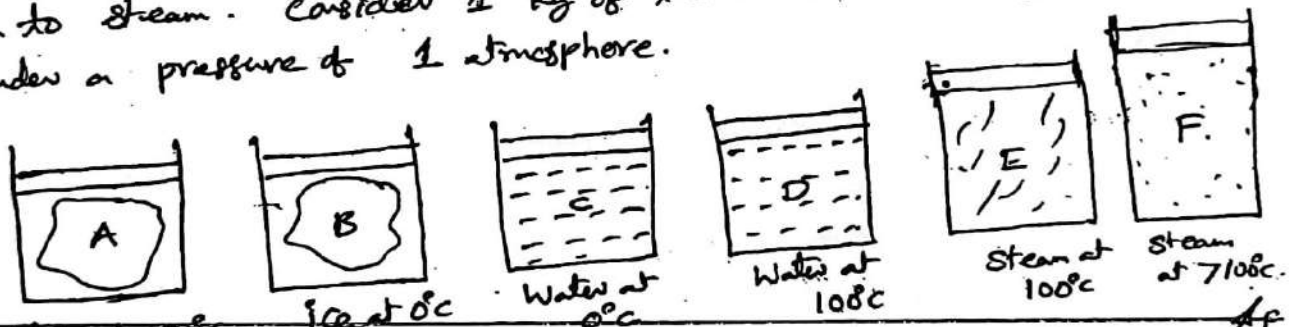 to steam. Consider 1 kg of
a pressure of 1 atmosphere.
A
B
C
D
E
F.
ice at 0°C
Water at
0°C
Water at
100°C
Steam at
100°C
Steam
at >100°C.